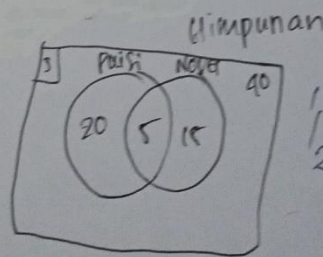 Himpunan
S Puisi Novel 40
20 5 15